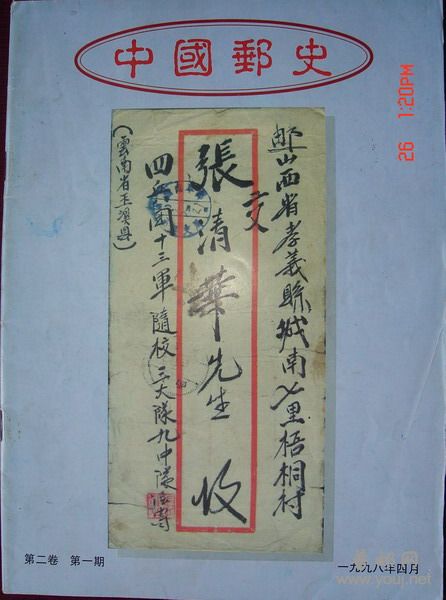 中國郵史
26 1:20PM
山西省孝義縣城南七里梧桐村
交
張清華先生 收
四兵团十三軍隨校三大隊九中隊
(雲南省玉溪县)
第二卷 第一期
一九九八年四月
www.youj.net